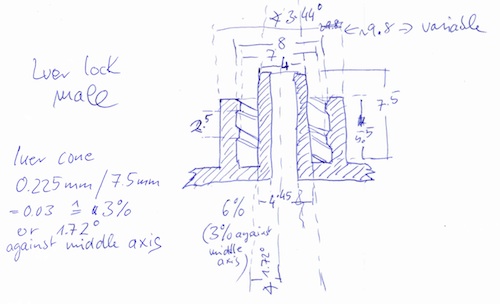 ∡ 3.44°
~9.8 => variable
8
7
4
Luer lock
male
2.5
7.5
5.5
luer cone
0.225mm / 7.5mm
= 0.03 ≙ 3%
or 1.72°
against middle axis
4.45
6%
(3% against
middle
axis)
∡ 1.72°